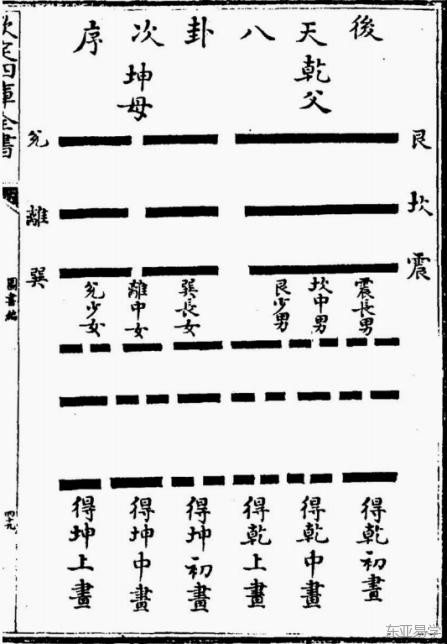 後天八卦次序
乾父
坤母
艮
坎
震
兌
離
巽
震長男
坎中男
艮少男
巽長女
離中女
兌少女
得乾初畫
得乾中畫
得乾上畫
得坤初畫
得坤中畫
得坤上畫
欽定四庫全書
圖書編
四十九
东亚易学